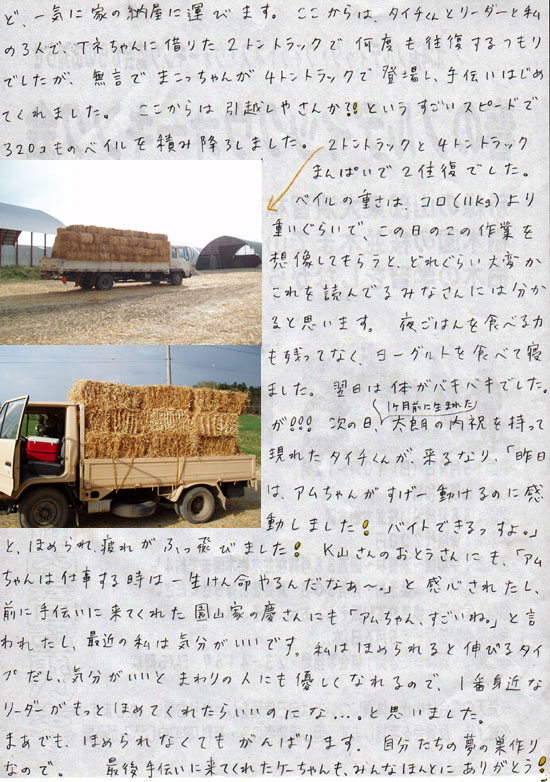 ど、一気に家の納屋に運びます。 ここからは、タイチくんとリーダーと私
の3人で、Tネちゃんに借りた2トントラックで何度も往復するつもり
でしたが、無言でまこっちゃんが4トントラックで登場し、手伝いはじめ
てくれました。 ここからは引越しやさんか?!というすごいスピードで
320コものベイルを積み降ろしました。 2トントラックと4トントラック
まんぱいで2往復でした。
ベイルの重さは、コロ(11Kg)より
重いぐらいで、この日のこの作業を
想像してもらうと、どれぐらい大変か
これを読んでるみなさんには分か
ると思います。 夜ごはんを食べる力
も残ってなく、ヨーグルトを食べて寝
ました。翌日は体がバキバキでした。
が!!! 次の日、1ヶ月前に生まれた太朗の内祝を持って
現れたタイチくんが、来るなり、「昨日
は、アムちゃんがすげー動けるのに感
動しました! バイトできるっすよ。」
と、ほめられ、疲れがふっ飛びました! K山さんのおとうさんにも、「アム
ちゃんは仕事する時は一生けん命やるんだなあ〜。」と感心されたし、
前に手伝いに来てくれた園山家の慶さんにも「アムちゃん、すごいね。」と言
われたし、最近の私は気分がいいです。私はほめられると伸びるタイ
プだし、気分がいいとまわりの人にも優しくなれるので、1番身近な
リーダーがもっとほめてくれたらいいのにな…。と思いました。
まあでも、ほめられなくてもがんばります。自分たちの夢の巣作り
なので。 最後手伝いに来てくれたケーちゃんも、みんなほんとにありがとう!